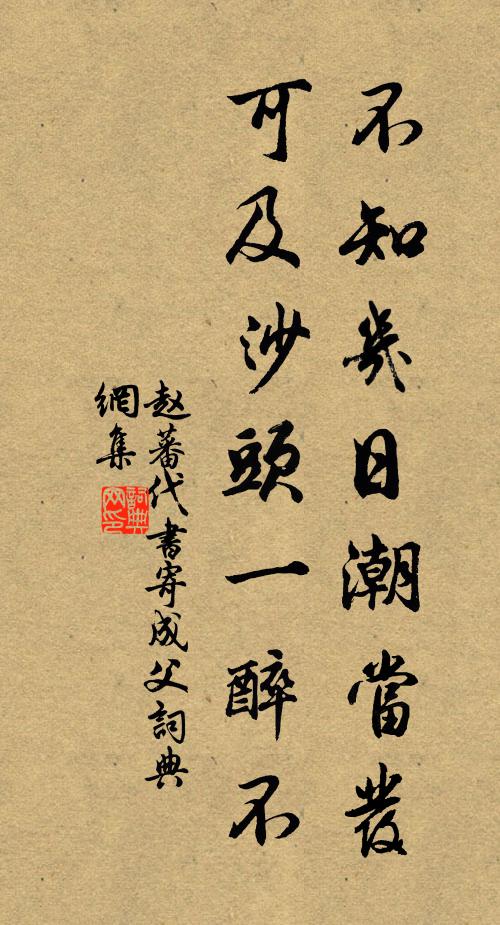 不知幾日潮當發
可及沙頭一醉不
赵蕃代書寄成父詞典
網集
詞典網印